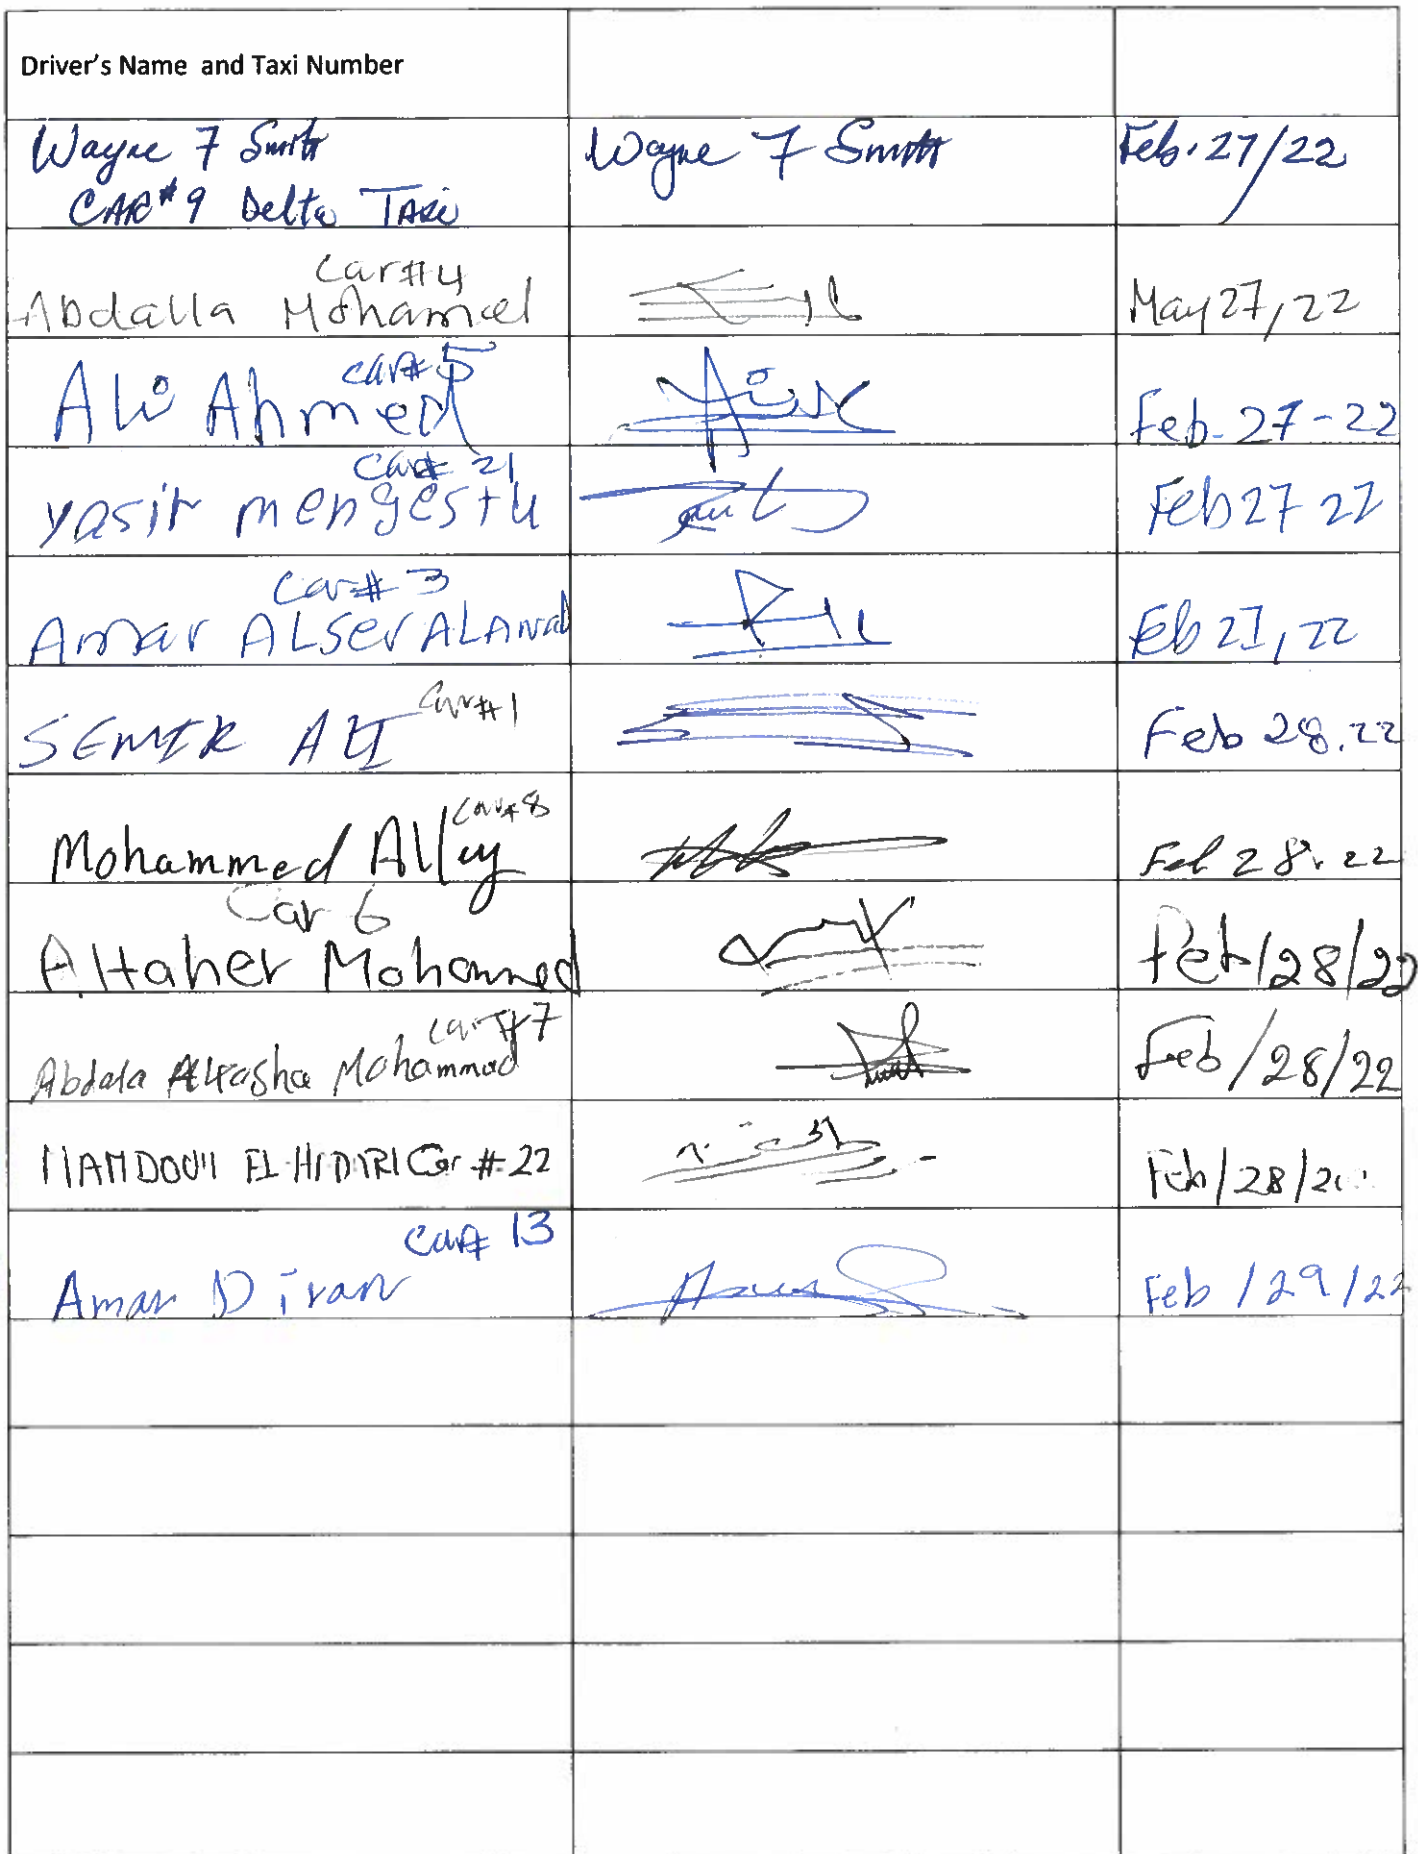 Driver's Name and Taxi Number
Wayne F Smith Wayne F Smith Feb. 27/22
CAR #9 Delta Taxi
Car #4
Abdalla Mohamed May 27, 22
car# 5
Ali Ahmed Feb - 27 - 22
Car# 21
yasir mengestu Feb 27 22
Car# 3
Amar ALSER ALANAD Feb 27, 22
Car#1
SEMIR ALI Feb 28. 22
Car#8
Mohammed Alley Feb 28. 22
Car 6
Altaher Mohammed Feb/28/22
Car #7
Abdala Mohammad Feb/28/22
MAMDOUH EL-HIDIRI Car #22 Feb/28/2
Car# 13
Amar Diran Feb/29/22